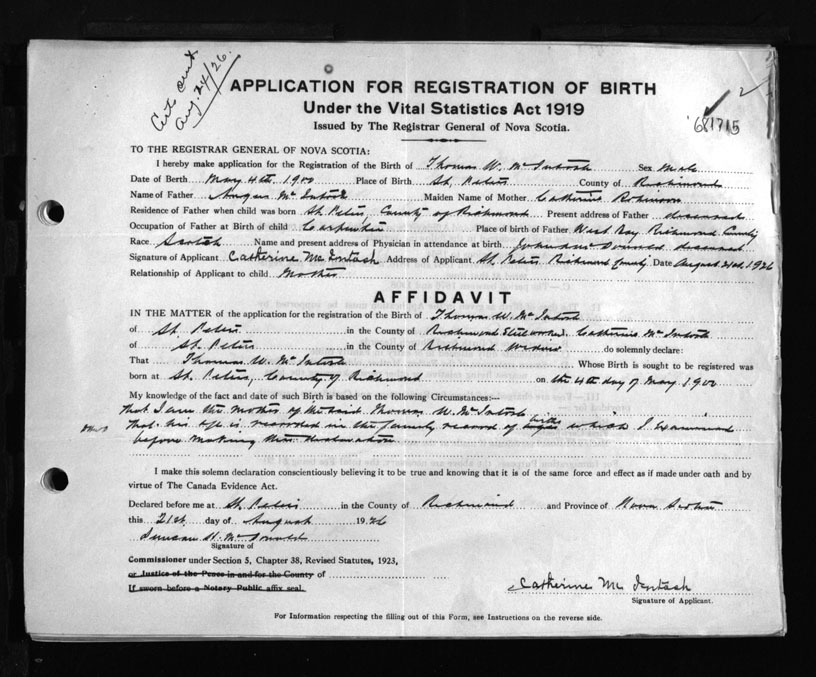 Cert sent
Aug. 24/26.
2
681715
APPLICATION FOR REGISTRATION OF BIRTH
Under the Vital Statistics Act 1919
Issued by The Registrar General of Nova Scotia.
TO THE REGISTRAR GENERAL OF NOVA SCOTIA:
I hereby make application for the Registration of the Birth of Thomas W. McIntosh Sex Male
Date of Berth May 4th, 1900 Place of Birth St. Peters County of Richmond
Name of Father Angus McIntosh Maiden Name of Mother Catherine Robinson
Residence of Father when child was born St. Peters, County of Richmond Present address of Father deceased
Occupation of Father at Birth of child Carpenter Place of birth of Father West Bay Richmond County
Race Scotch Name and present address of Physician in attendance at birth deceased
Signature of Applicant Catherine McIntosh Address of Applicant St. Peters Richmond County Date August 21st, 1926
Relationship of Applicant to child Mother
AFFIDAVIT
IN THE MATTER of the application for the registration of the Birth of Thomas W. McIntosh
of St. Peters in the County of Richmond Catherine McIntosh
of St. Peters in the County of Richmond Widow do solemnly declare:
That Thomas W. McIntosh Whose Birth is sought to be registered was
born at St. Peters, County of Richmond on the 4th day of May 1900
My knowledge of the fact and date of such Birth is based on the following Circumstances:—
That I am the mother of the said Thomas W. McIntosh
That his age is recorded in the family record of births which I examined
before making this declaration
I make this solemn declaration conscientiously believing it to be true and knowing that it is of the same force and effect as if made under oath and by
virtue of The Canada Evidence Act.
Declared before me at St. Peters in the County of Richmond and Province of Nova Scotia
this 21st day of August 1926
Duncan H. McDonald
Signature of
Commissioner under Section 5, Chapter 38, Revised Statutes, 1923,
or Justice of the Peace in and for the County of
If sworn before a Notary Public affix seal.
Catherine McIntosh
Signature of Applicant.
For Information respecting the filling out of this Form, see Instructions on the reverse side.